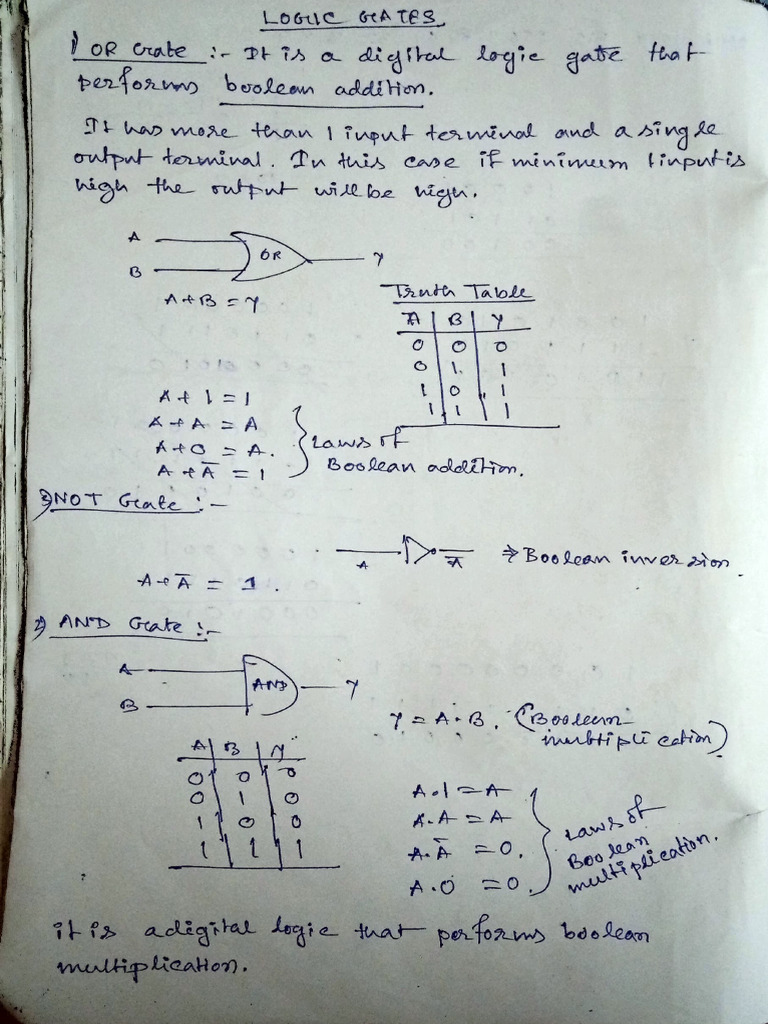 LOGIC GATES.
1) OR Gate :- It is a digital logic gate that
performs boolean addition.
It has more than 1 input terminal and a single
output terminal. In this case if minimum 1 input is
high the output will be high.
A
OR
Y
B
A + B = Y
Truth Table
A B Y
0 0 0
0 1 1
1 0 1
1 1 1
A + 1 = 1
A + A = A
A + 0 = A.
A + Ā = 1
Laws of
Boolean addition.
3) NOT Gate :-
A
Ā
⇒ Boolean inversion.
A + Ā = 1.
2) AND Gate :-
A
AND
Y
B
Y = A · B. (Boolean
multiplication)
A B Y
0 0 0
0 1 0
1 0 0
1 1 1
A · 1 = A
A · A = A
A · Ā = 0.
A · 0 = 0.
Laws of
Boolean
multiplication.
it is a digital logic that performs boolean
multiplication.